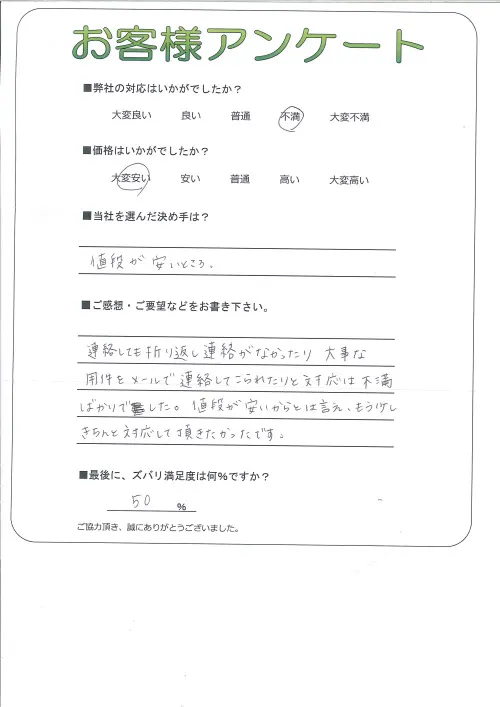 お客様アンケート
■弊社の対応はいかがでしたか？
大変良い 良い 普通 不満 大変不満
■価格はいかがでしたか？
大変安い 安い 普通 高い 大変高い
■当社を選んだ決め手は？
値段が安いところ。
■ご感想・ご要望などをお書き下さい。
連絡しても折り返し連絡がなかったり 大事な
用件をメールで連絡してこられたりと対応は不満
ばかりでした。値段が安いからとは言え、もう少し
きちんと対応して頂きたかったです。
■最後に、ズバリ満足度は何％ですか？
50 ％
ご協力頂き、誠にありがとうございました。